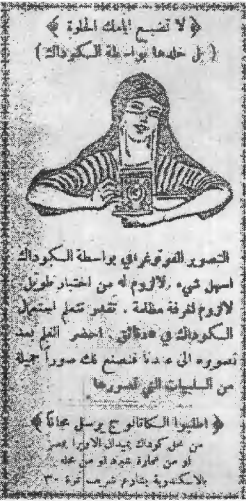 ﴿ لا تضيع ايامك الحلوة ﴾
( بل خلدها بواسطة الكوداك )
التصوير الفوتوغرافي بواسطة الكوداك
اسهل شيء ولا لزوم له من اختبار طويل
لا لزوم لغرفة مظلمة . تقدر تتعلم استعمال
الكوداك في دقائق . احضر الفلم بعد
تصويره الى عندنا فنصنع لك صوراً جميلة
من السلبيات التي تصورها
﴿ اطلبوا الكاتالوج يرسل مجاناً ﴾
من محل كوداك بميدان الاوبرا بمصر
او من عمارة شبرد او من محله
بالاسكندرية بشارع شريف نمرة ٣٠